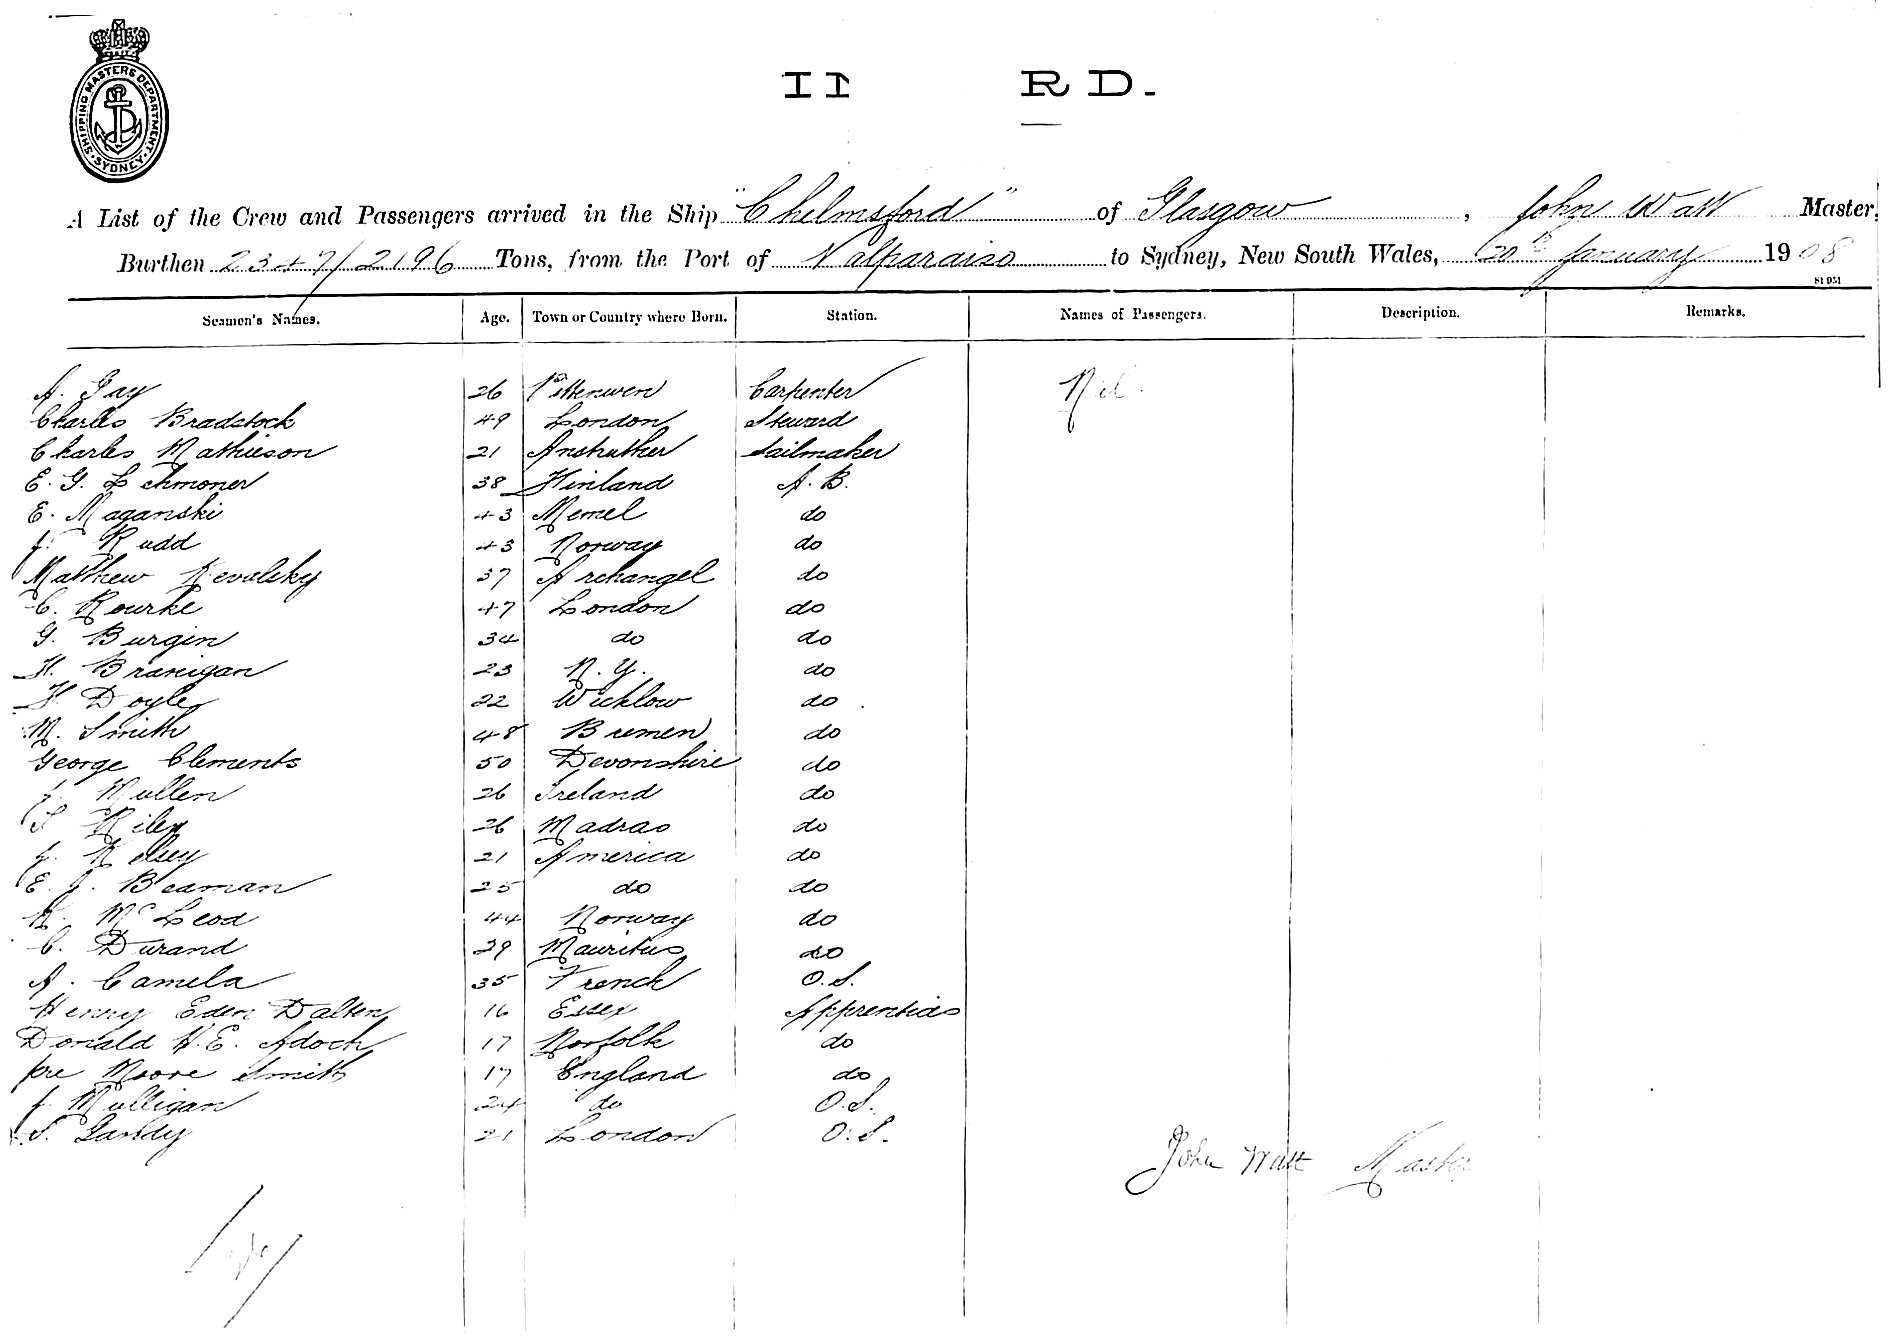 SHIPPING MASTERS DEPARTMENT
SYDNEY
RD.
A List of the Crew and Passengers arrived in the Ship "Chelmsford" of Glasgow, John Watt Master,
Burthen 2347/2196 Tons, from the Port of Valparaiso to Sydney, New South Wales, 20th January 1908
St 951
Seamen's Names. Age. Town or Country where Born. Station. Names of Passengers. Description. Remarks.
A. Gay 26 Pittenween Carpenter Nil.
Charles Bradstock 49 London Steward
Charles Mathieson 21 Anstruther Sailmaker
E. G. Lehmoner 38 Finland A. B.
E. Maganski 43 Memel do
J. Rudd 43 Norway do
Matthew Kevalsky 37 Archangel do
C. Rourke 47 London do
G. Burgin 34 do do
H. Branigan 23 N. Y. do
H. Doyle 22 Wicklow do
M. Smith 48 Bremen do
George Clements 50 Devonshire do
J. Mullen 26 Ireland do
T Riley 26 Madras do
J. Kelsey 21 America do
E. J. Beaman 25 do do
K. McLeod 44 Norway do
C. Durand 29 Mauritus do
A. Camela 35 French O.S.
Henry Eden Dalten 16 Essex Apprentice
Donald H. E. Adoch 17 Norfolk do
Moore Smith 17 England do
J. Mulligan 24 do O.S.
S. Gandy 21 London O.S.
John Watt Master